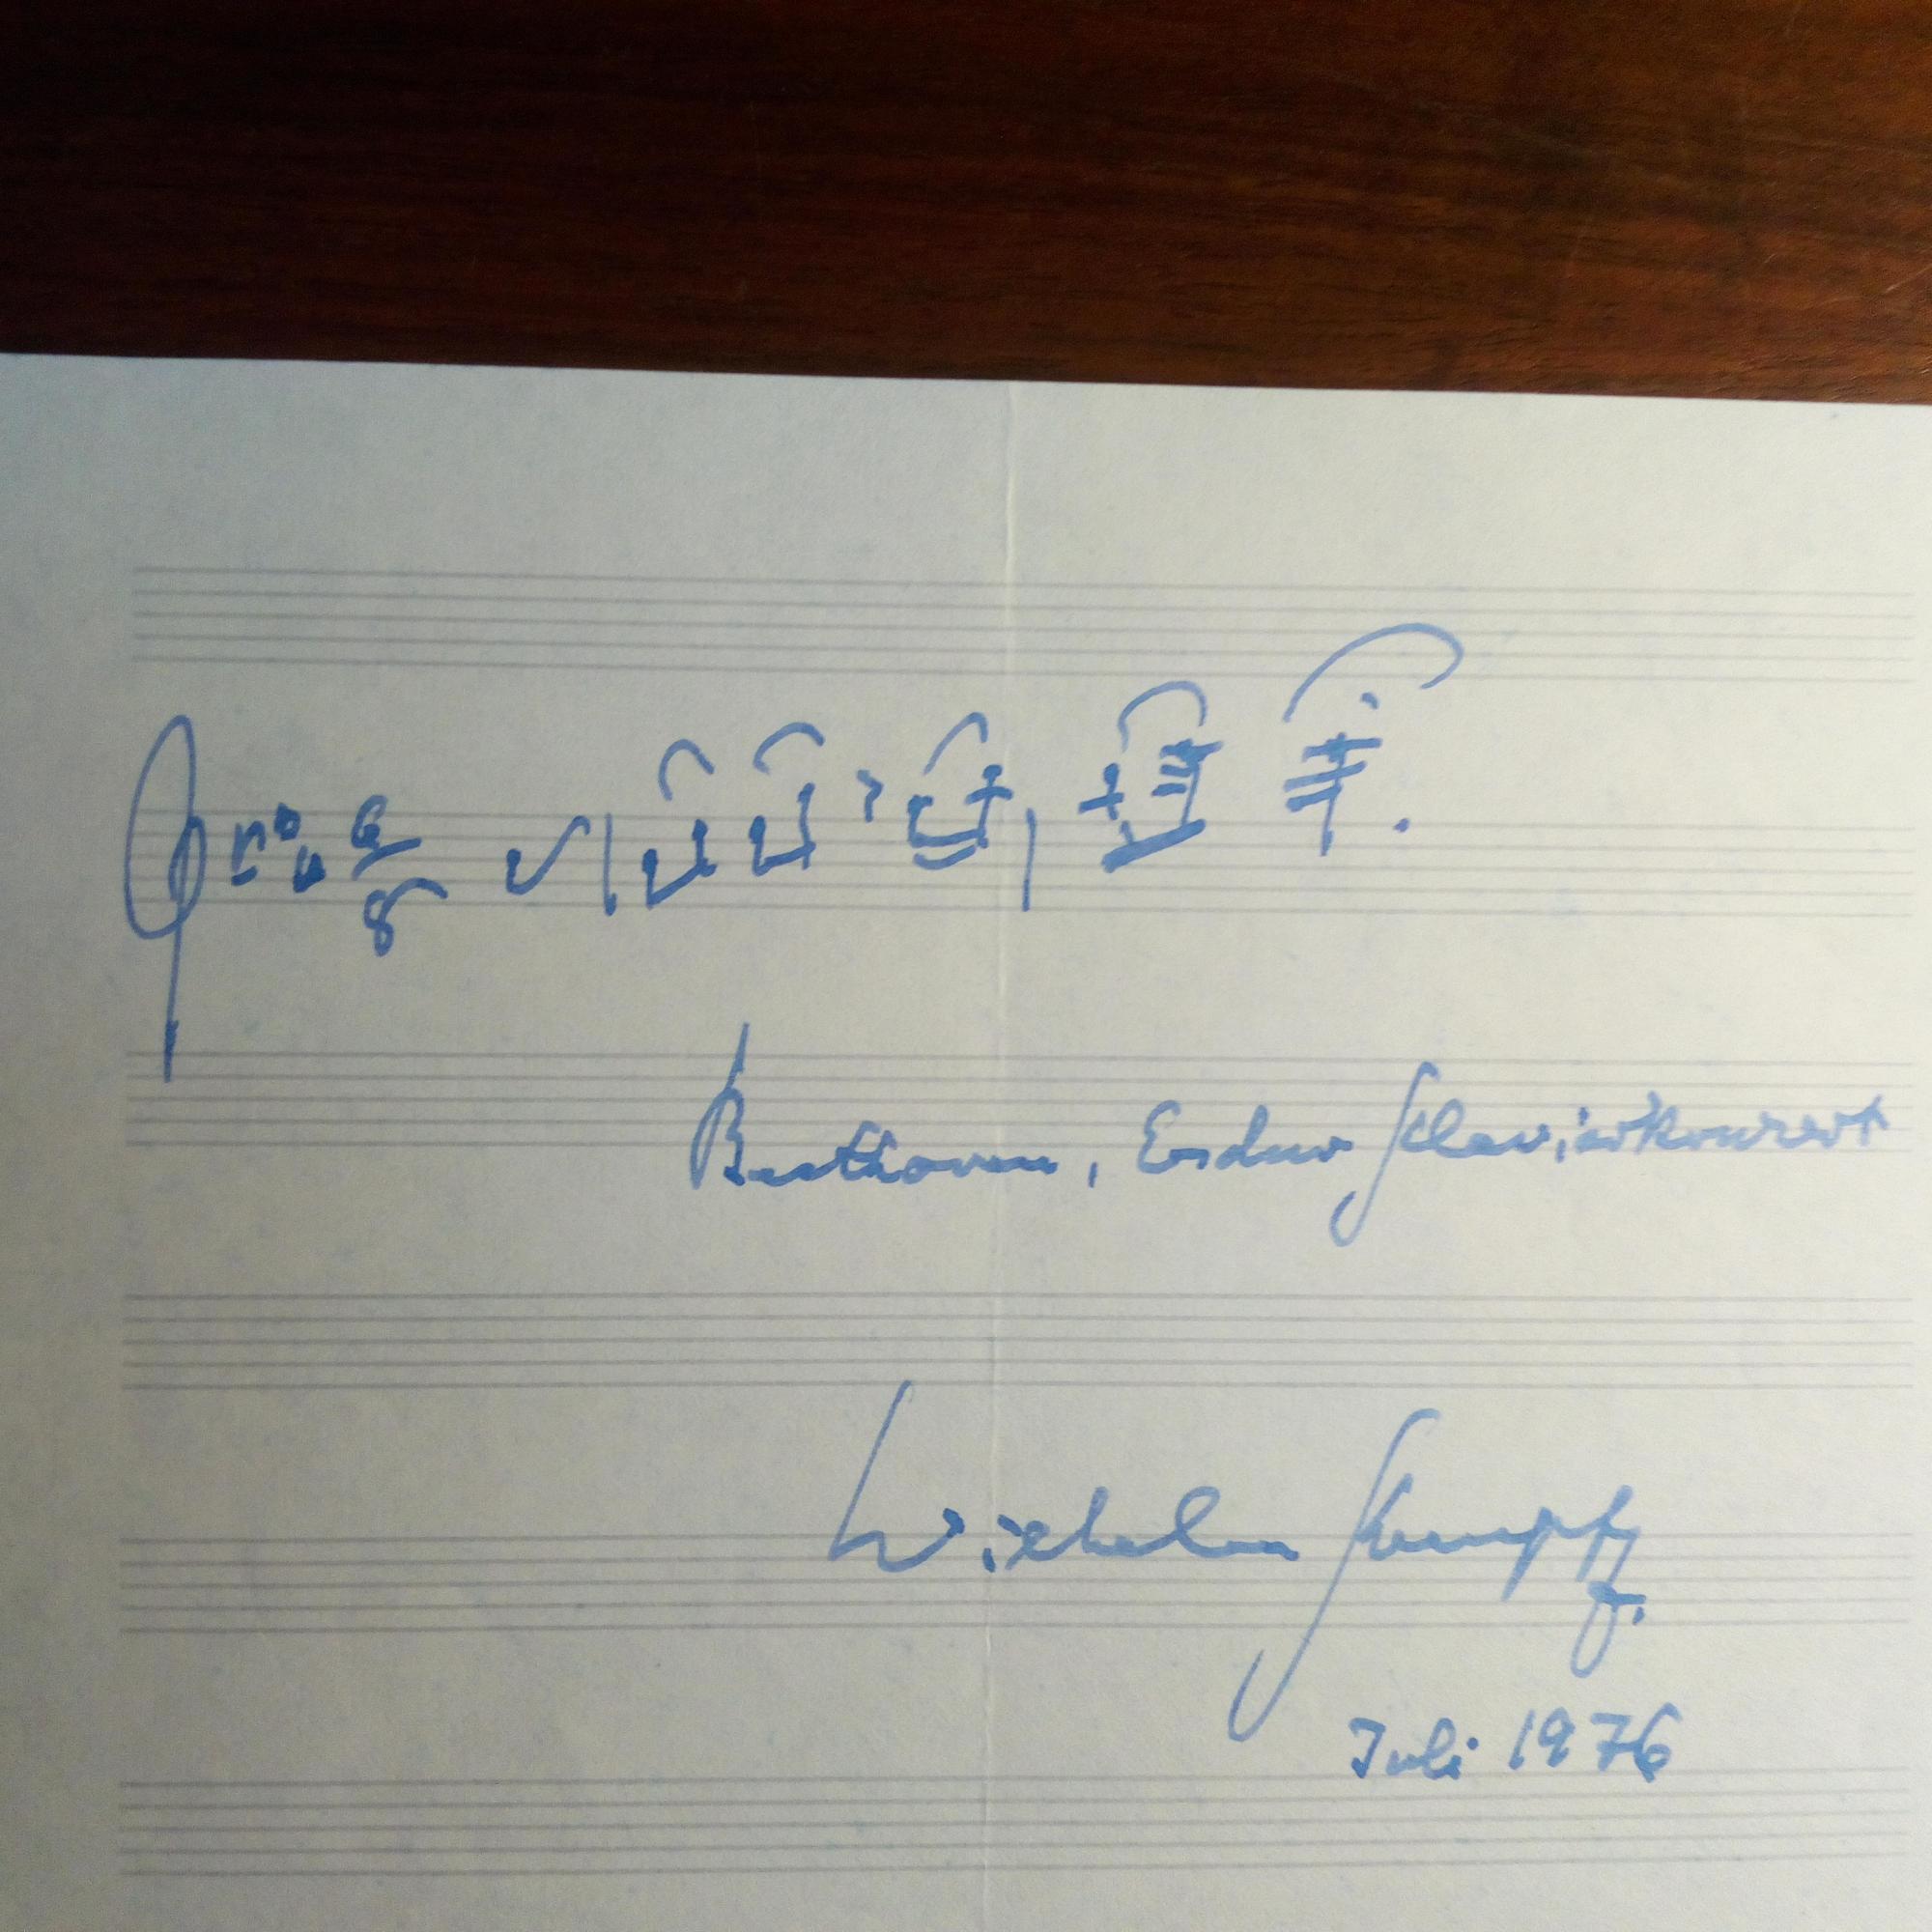 6
8
Beethoven, Esdur Klavierkonzert
Wilhelm Kempff.
Juli 1976